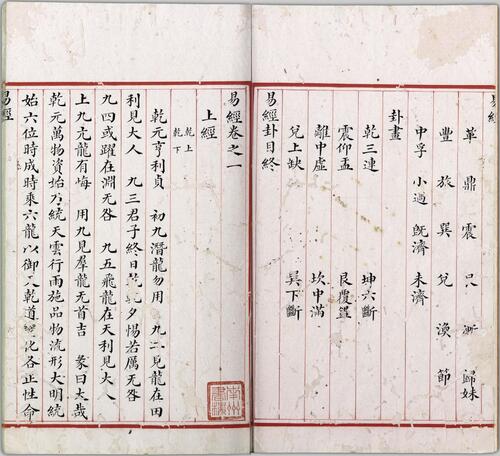 易經
革 鼎 震 艮 漸 歸妹
豐 旅 巽 兌 渙 節
中孚 小過 旣濟 未濟
卦畫
乾三連 坤六斷
震仰盂 艮覆盌
離中虛 坎中滿
兌上缺 巽下斷
易經卦目終
易經卷之一
上經
乾上
乾下
乾元亨利貞 初九潛龍勿用 九二見龍在田
利見大人 九三君子終日乾乾夕惕若厲无咎
九四或躍在淵无咎 九五飛龍在天利見大人
上九亢龍有悔 用九見羣龍无首吉 彖曰大哉
乾元萬物資始乃統天雲行雨施品物流形大明終
始六位時成時乘六龍以御天乾道變化各正性命
易經